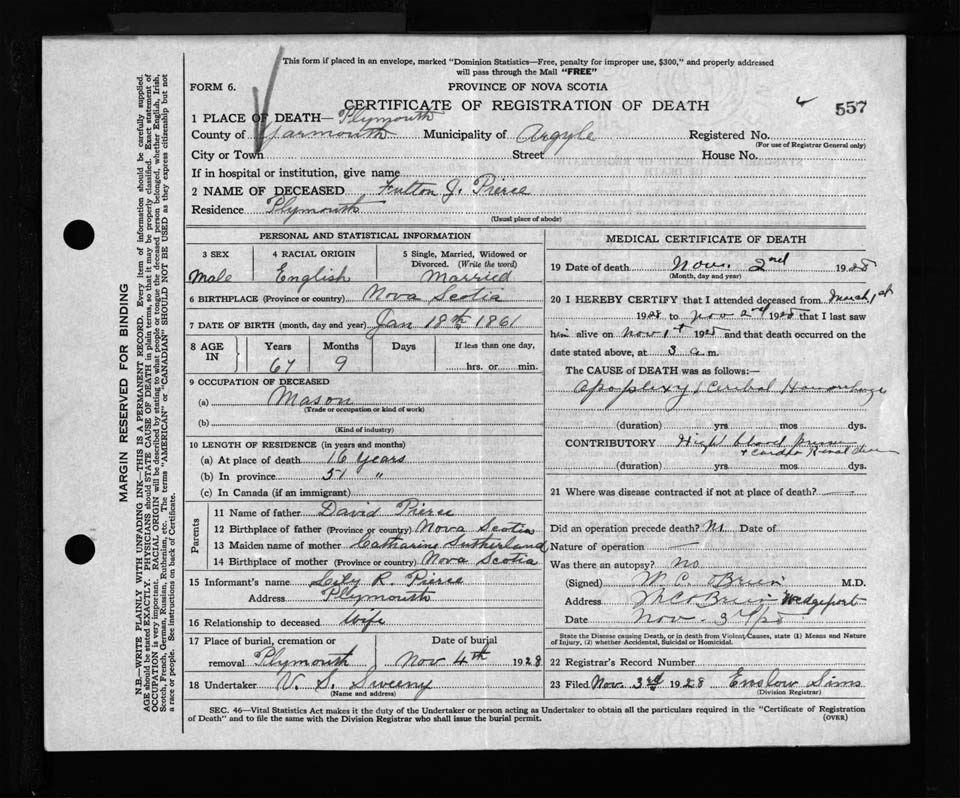 This form if placed in an envelope, marked "Dominion Statistics—Free, penalty for improper use, $300," and properly addressed
will pass through the Mail "FREE"
FORM 6.
PROVINCE OF NOVA SCOTIA
CERTIFICATE OF REGISTRATION OF DEATH
557
1 PLACE OF DEATH— Plymouth
County of Yarmouth Municipality of Argyle Registered No.
(For use of Registrar General only)
City or Town Street House No.
If in hospital or institution, give name
2 NAME OF DECEASED Fulton J. Pierce
Residence Plymouth
(Usual place of abode)
PERSONAL AND STATISTICAL INFORMATION
3 SEX 4 RACIAL ORIGIN 5 Single, Married, Widowed or
Divorced. (Write the word)
Male English Married
6 BIRTHPLACE (Province or country) Nova Scotia
7 DATE OF BIRTH (month, day and year) Jan 18th 1861
8 AGE IN Years Months Days If less than one day,
67 9 hrs. or min.
9 OCCUPATION OF DECEASED
(a) Mason
(Trade or occupation or kind of work)
(b)
(Kind of industry)
10 LENGTH OF RESIDENCE (in years and months)
(a) At place of death 16 years
(b) In province 51 "
(c) In Canada (if an immigrant)
Parents
11 Name of father David Pierce
12 Birthplace of father (Province or country) Nova Scotia
13 Maiden name of mother Catharine Sutherland
14 Birthplace of mother (Province or country) Nova Scotia
15 Informant's name Lily R. Pierce
Address Plymouth
16 Relationship to deceased Wife
17 Place of burial, cremation or Date of burial
removal Plymouth Nov 4th 1928
18 Undertaker V. S. Sweeny
(Name and address)
MEDICAL CERTIFICATE OF DEATH
19 Date of death Nov. 2nd 1928
(Month, day and year)
20 I HEREBY CERTIFY that I attended deceased from March 1st
1928 to Nov 2nd 1928 that I last saw
him alive on Nov 1st 1928 and that death occurred on the
date stated above, at 3 a.m.
The CAUSE of DEATH was as follows:—
Apoplexy / Cerebral Haemorrhage
(duration) yrs. mos. days
CONTRIBUTORY High blood pressure
+ cardio Renal
(duration) yrs. mos. days
21 Where was disease contracted if not at place of death?
Did an operation precede death? No Date of
Nature of operation —
Was there an autopsy? no
(Signed) W. C. O'Brien M.D.
Address Wedgeport
Date Nov. 3rd/28
State the Disease causing Death, or in death from Violent Causes, state (1) Means and Nature
of Injury, (2) whether Accidental, Suicidal or Homicidal.
22 Registrar's Record Number
23 Filed Nov. 3rd 1928 Enslow Sims
(Division Registrar)
SEC. 46—Vital Statistics Act makes it the duty of the Undertaker or person acting as Undertaker to obtain all the particulars required in the "Certificate of Registration
of Death" and to file the same with the Division Registrar who shall issue the burial permit.
(OVER)
MARGIN RESERVED FOR BINDING
N.B.—WRITE PLAINLY WITH UNFADING INK—THIS IS A PERMANENT RECORD. Every item of information should be carefully supplied.
AGE should be stated EXACTLY. PHYSICIANS should STATE CAUSE OF DEATH in plain terms, so that it may be properly classified. Exact statement of
OCCUPATION is very important. RACIAL ORIGIN will be described by stating to what people or tongue the deceased person belonged, whether English, Irish,
Scotch, French, German, Russian, Ruthenian, etc. The terms "AMERICAN" or "CANADIAN" SHOULD NOT BE USED as they express citizenship but not
a race or people. See instructions on back of Certificate.